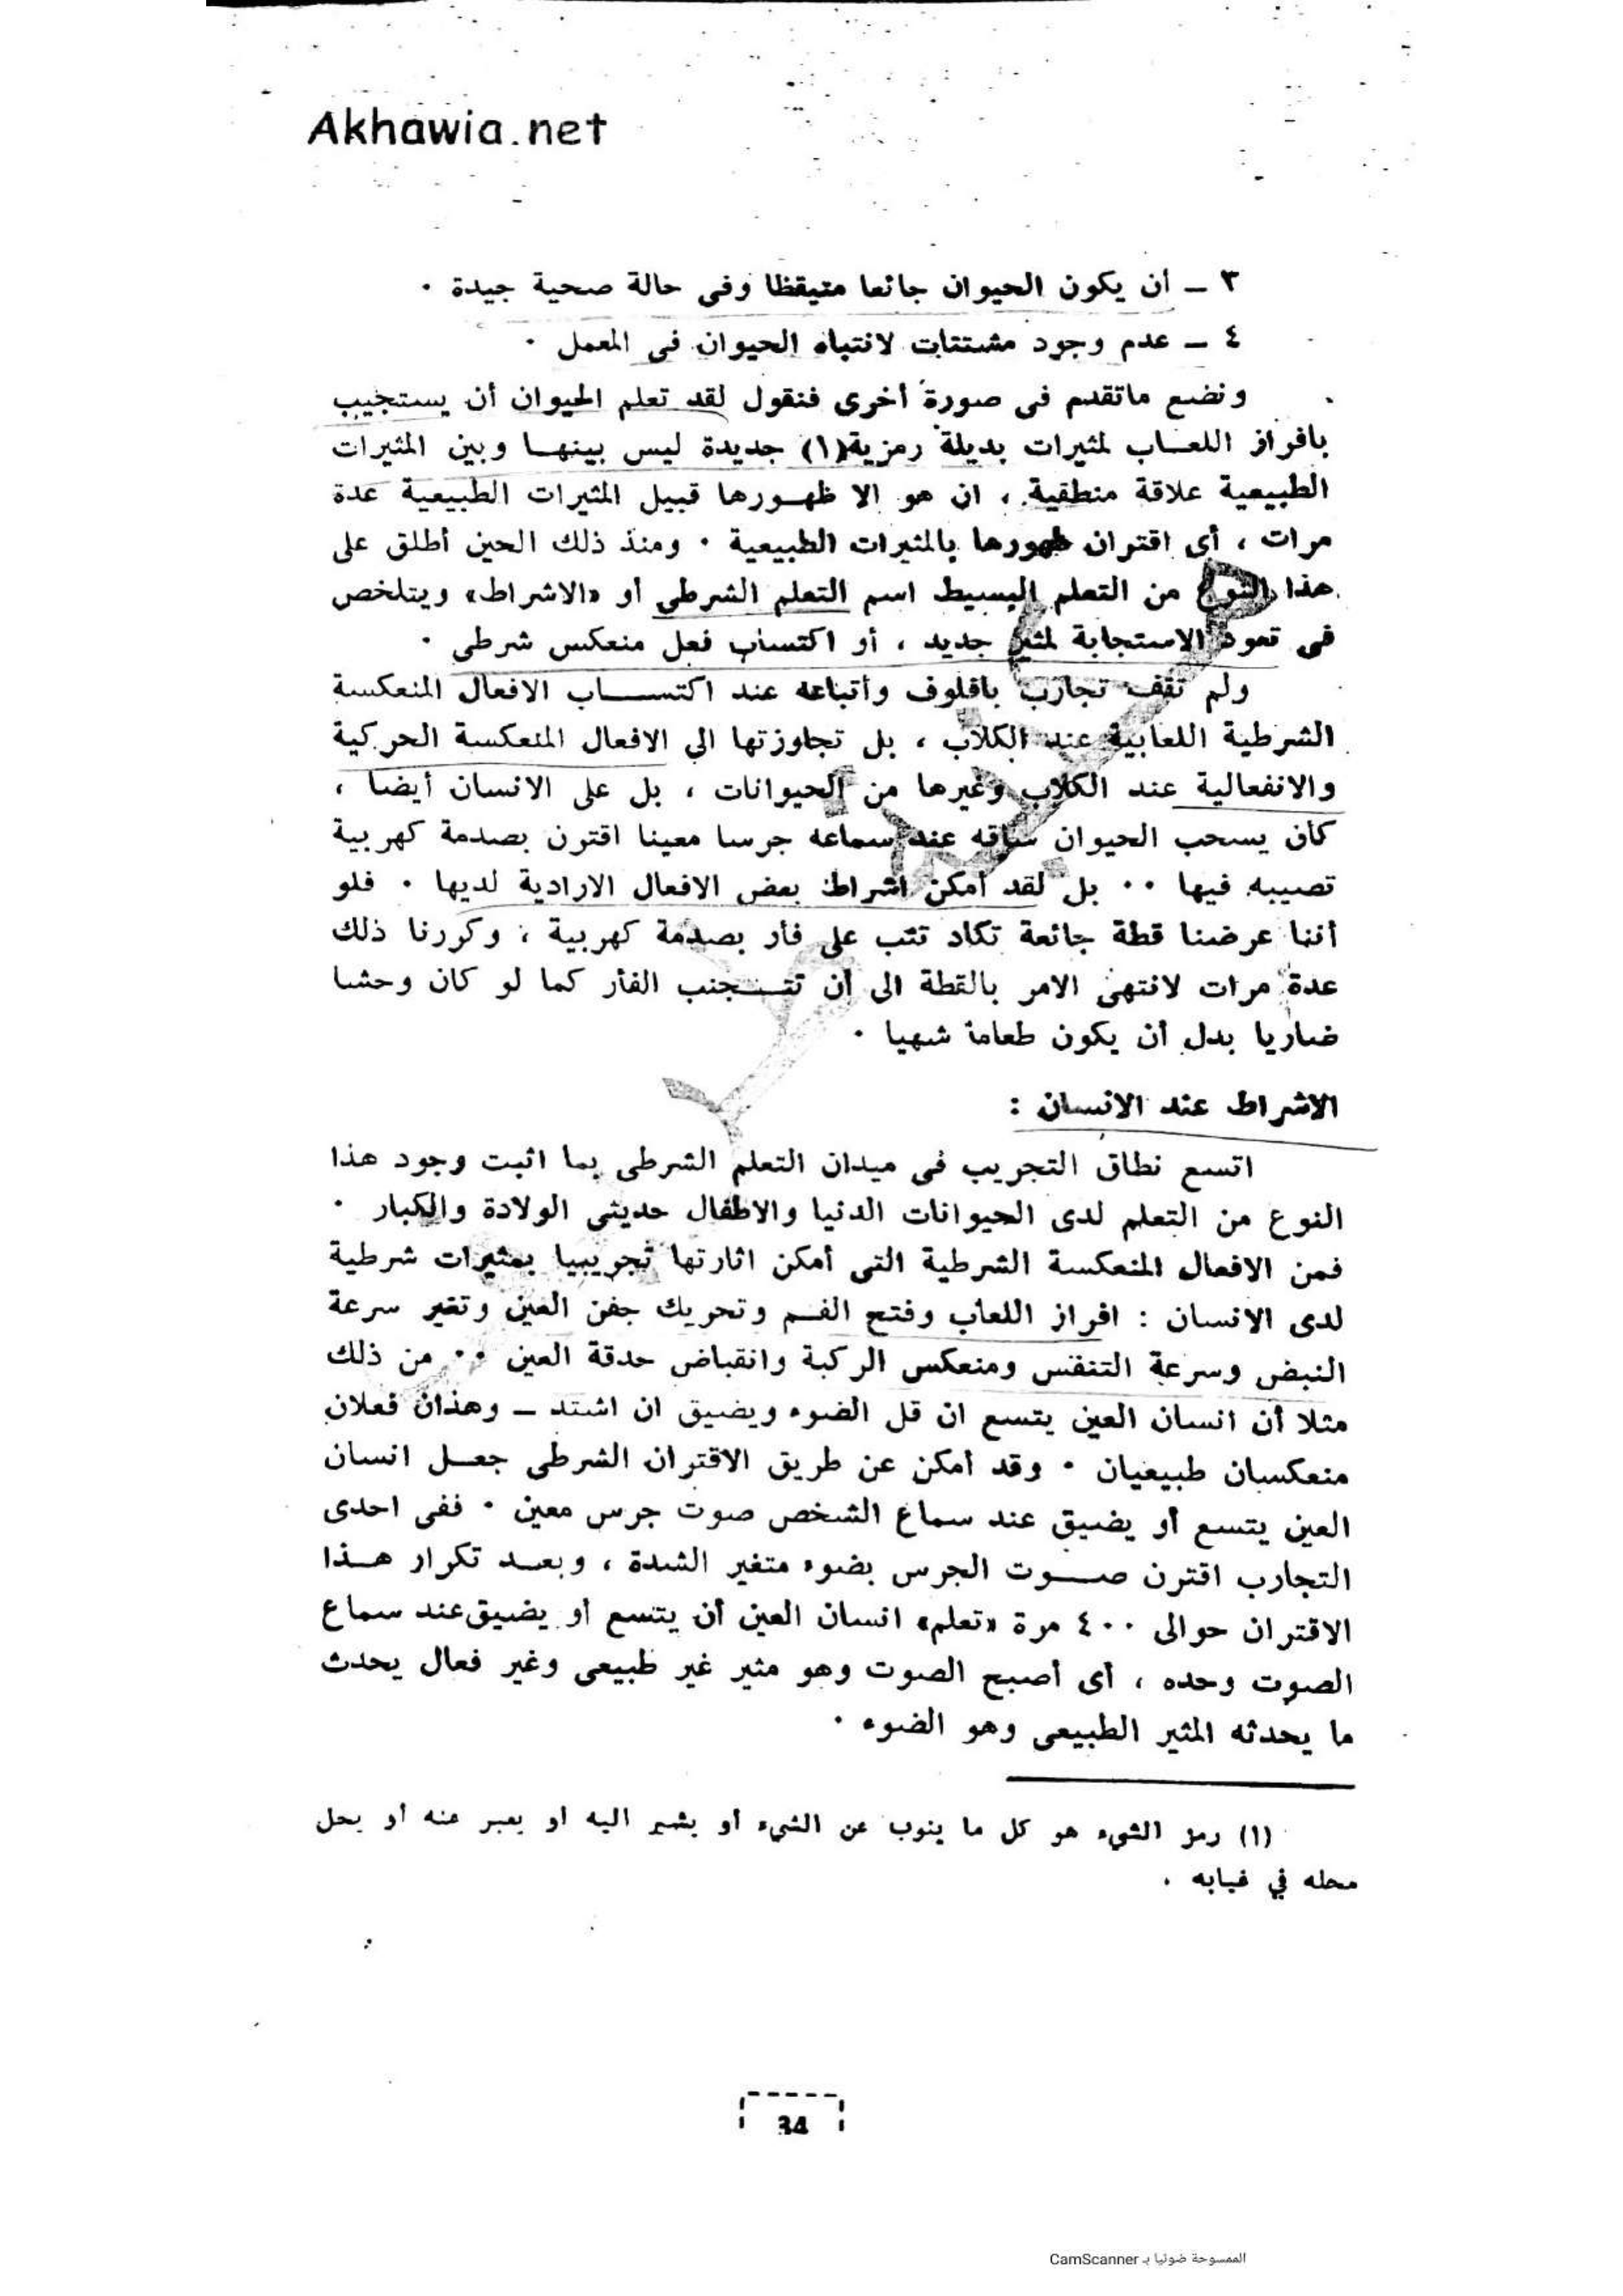 Akhawia.net
٣ ــ أن يكون الحيوان جائعا متيقظا وفى حالة صحية جيدة ٠
٤ ــ عدم وجود مشتتات لانتباه الحيوان فى المعمل ٠
ونضع ماتقدم فى صورة أخرى فنقول لقد تعلم الحيوان أن يستجيب
بافراز اللعـاب لمثيرات بديلة رمزية(١) جديدة ليس بينهـا وبين المثيرات
الطبيعية علاقة منطقية ، ان هو الا ظهـورها قبيل المثيرات الطبيعية عدة
مرات ، أى اقتران ظهورها بالمثيرات الطبيعية ٠ ومنذ ذلك الحين أطلق على
هذا النوع من التعلم البسيط اسم التعلم الشرطى أو «الاشراط» ويتلخص
فى تعود الاستجابة لمثير جديد ، أو اكتساب فعل منعكس شرطى ٠
ولم تقف تجارب بافلوف وأتباعه عند اكتسـاب الافعال المنعكسة
الشرطية اللعابية عند الكلاب ، بل تجاوزتها الى الافعال المنعكسة الحركية
والانفعالية عند الكلاب وغيرها من الحيوانات ، بل على الانسان أيضا ،
كأن يسحب الحيوان ساقه عند سماعه جرسا معينا اقترن بصدمة كهربية
تصيبه فيها ٠٠ بل لقد أمكن اشراط بعض الافعال الارادية لديها ٠ فلو
أننا عرضنا قطة جائعة تكاد تثب على فأر بصدمة كهربية ، وكررنا ذلك
عدة مرات لانتهى الامر بالقطة الى أن تتـجنب الفأر كما لو كان وحشا
ضاريا بدل أن يكون طعاما شهيا ٠
الاشراط عند الانسان :
اتسع نطاق التجريب فى ميدان التعلم الشرطى بما اثبت وجود هذا
النوع من التعلم لدى الحيوانات الدنيا والاطفال حديثى الولادة والكبار ٠
فمن الافعال المنعكسة الشرطية التى أمكن اثارتها تجريبيا بمثيرات شرطية
لدى الانسان : افراز اللعاب وفتح الفـم وتحريك جفن العين وتغير سرعة
النبض وسرعة التنفس ومنعكس الركبة وانقباض حدقة العين ٠٠ من ذلك
مثلا أن انسان العين يتسع ان قل الضوء ويضيق ان اشتد ــ وهذان فعلان
منعكسان طبيعيان ٠ وقد أمكن عن طريق الاقتران الشرطى جعـل انسان
العين يتسع أو يضيق عند سماع الشخص صوت جرس معين ٠ ففى احدى
التجارب اقترن صـوت الجرس بضوء متغير الشدة ، وبعـد تكرار هـذا
الاقتران حوالى ٤٠٠ مرة «تعلم» انسان العين أن يتسع أو يضيق عند سماع
الصوت وحده ، أى أصبح الصوت وهو مثير غير طبيعى وغير فعال يحدث
ما يحدثه المثير الطبيعى وهو الضوء ٠
(١) رمز الشيء هو كل ما ينوب عن الشيء أو يشير اليه او يعبر عنه أو يحل
محله في غيابه .
34
الممسوحة ضوئيا بـ CamScanner